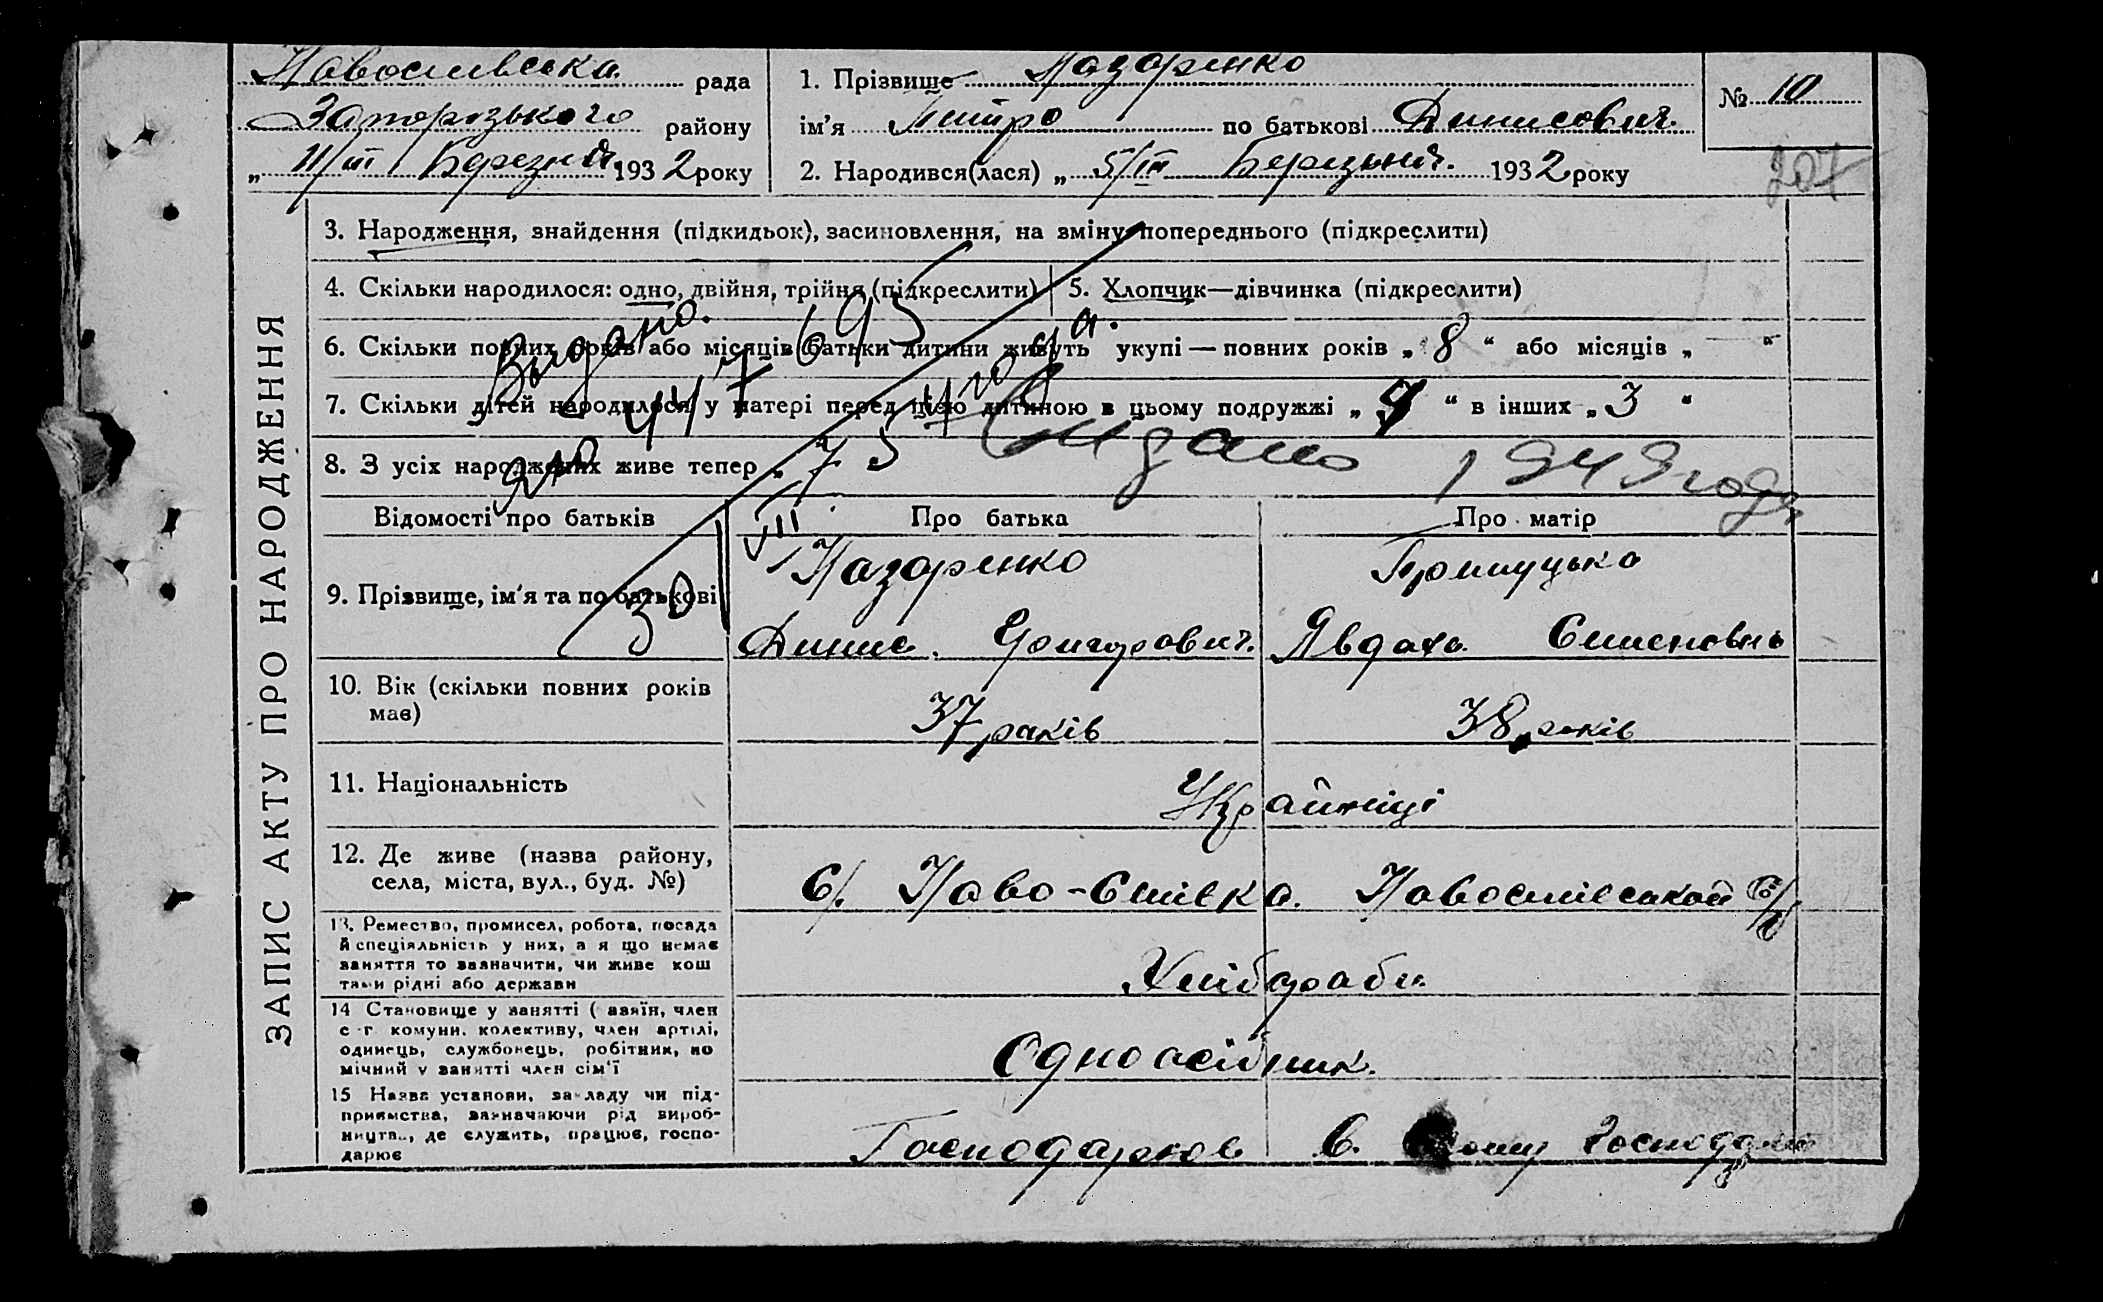 Новосилівська рада
Запорізького району
„ 11/III Березня 1932 року
1. Прізвище Назаренко
ім'я Митро по батькові Динисович
2. Народився(лася) „ 5/III Березьня. 1932 року
№ 10
207
ЗАПИС АКТУ ПРО НАРОДЖЕННЯ
3. Народження, знайдення (підкидьок), засиновлення, на зміну попереднього (підкреслити)
4. Скільки народилося: одно, двійня, трійня (підкреслити)
5. Хлопчик—дівчинка (підкреслити)
6. Скільки повних років або місяців батьки дитини живуть укупі — повних років „ 8 “ або місяців „ — “
7. Скільки дітей народилося у матері перед цією дитиною в цьому подружжі „ “ в інших „ 3 “
8. З усіх народжених живе тепер „
Выдано.
695
30
Видано 1949 года
Відомості про батьків
Про батька
Про матір
9. Прізвище, ім'я та по батькові
Назаренко
Динис. Григорович.
Прилуцька
Явдоха Семеновна
10. Вік (скільки повних років має)
37 років
38 років
11. Національність
Українці
12. Де живе (назва району,
села, міста, вул., буд. №)
с/. Ново-Силівка. Новосилівської
13. Ремество, промисел, робота, посада
й спеціяльність у них, а я що немає
заняття то зазначити, чи живе кош
тами рідні або держави
Хліборобы
14 Становище у занятті (хазяїн, член
с-г комуни, колективу, член артілі,
одинець, службовець, робітник, по
мічний у занятті член сім'ї
Одноосібник.
15 Назва установи, закладу чи під-
приємства, зазначаючи рід вироб-
ництва, де служить, працює, госпо-
дарює
Господарює в. своему господарс